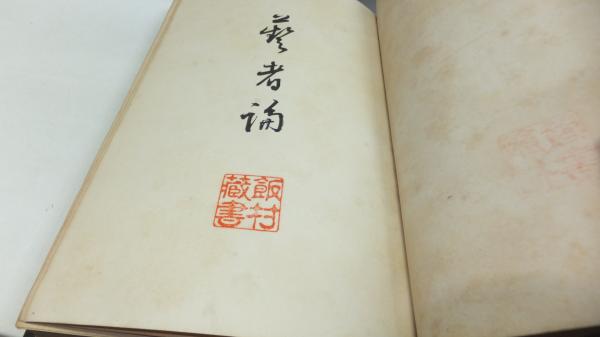 藝者論
飯村
藏書